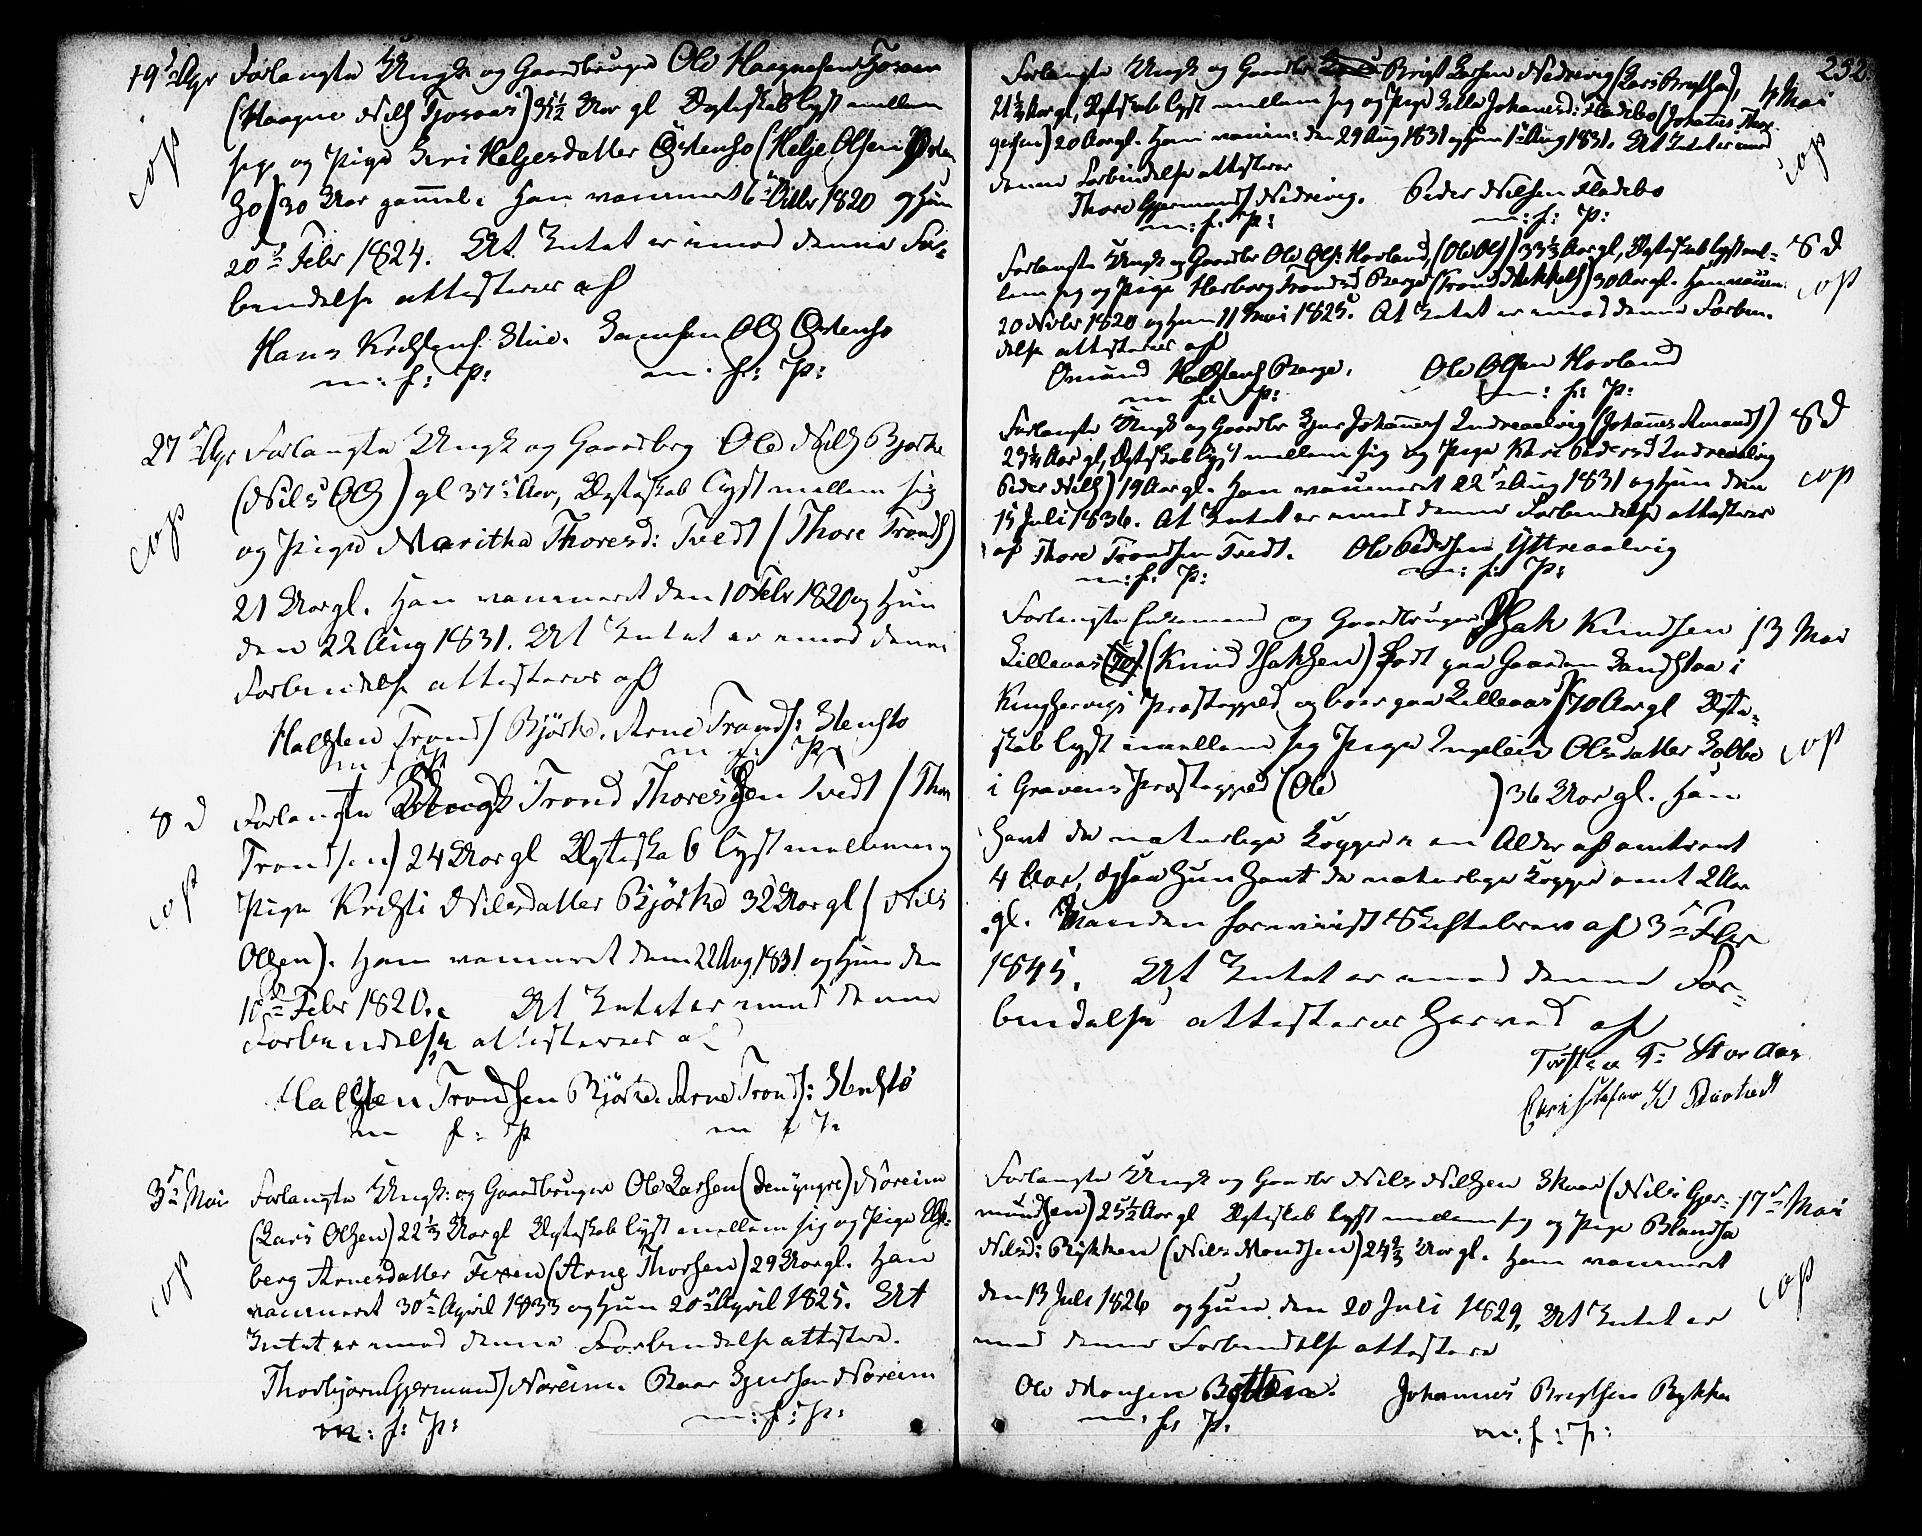 19de Apr Forlangte Ungk og Gaardbruger Ole Haagnesen Tjoraas
(Haagne Nils Tjoraas) 31½ Aar gl Ægteskab lyst mellem
cop
sig og Pige Guri Helgesdatter Östensö (Helje Olsen Östen
sö) 30 Aar gammel. Han vaccineret 6te Octbr 1820 og Hun
20de Febr 1824. At Intet er imod denne For-
bindelse attesterer af
Hans Stue. Samson Ols Östensö
m: f: P: m: f: P:
27de Apr Forlangte Ungk og Gaardbrg Ole Nils Bjorke
(Nils Ols) gl 37 Aar, Ægteskab lyst mellem sig
cop
og Pige Maritha Thoresd: Tvedt (Thore Tronds)
21 Aar gl. Han vaccineret den 10 Febr 1820 og Hun
den 22 Aug 1831. At Intet er imod denne
Forbindelse attesterer af
Halsten Tronds Björke. Arne Tronds: Stensto
m f P m f: P:
8 d Forlangte Ungk Trond Thoresen Tvedt (Thore
Trondsen) 24 Aar gl Ægteskab lyst mellem sig og
cop
Pige Kristi Nilsdatter Björke 32 Aar gl (Nils
Olsen). Han vaccineret den 22 Aug 1831 og Hun den
10de Febr 1820. At Intet er imod denne
Forbindelse attesterer af
Halsten Trondsen Björke. Arne Tronds: Stensto
m f: P m f P:
3de Mai Forlangte Ungk: og Gaardbruger Ole Larsen (den yngre) Noreim
(Lars Olsen) 22⅓ Aar gl Ægteskab lyst mellem sig og Pige Elße-
cop
berg Arnesdatter Fixen (Arne Thorsen) 29 Aar gl. Han
vaccineret 30te April 1833 og Hun 20de April 1825. At
Intet er imod denne Forbindelse attestere.
Thorbjorn Gjermunds Noreim. Noreim
m: f: P: m: f: P:
232
Forlangte Ungk og Gaardbr Brigt Larsen Nedrevig (Lars Brigthsen), 4 Mai
21¾ Aar gl, Ægteskab lyst mellem sig og Pige Johanesd: Fladebo (Johanes Thor
gersen) 20 Aar gl. Han vaccin: den 29 Aug 1831 og Hun 1 Aug 1831. At Intet er imod
cop
denne Forbindelse attesterer
Thore Gjermunds Nedrevig. Peder Nilsen Fladebo
m: f: P: m: f: P:
Forlangte Ungk og Gaardbr Ole Ols: Horland, (Ole Ols) 33⅓ Aar gl, Ægteskab lyst mel- 8 d
lem sig og Pige Herborg Trondsd Berge (Trond) 30 Aar gl. Han vaccin: cop
20 Novbr 1820 og Hun 11 Mai 1825. At Intet er imod denne Forbin-
delse attesterer af
Omund Halstens Berge. Ole Olsen Horland
m f: P: m: f: P:
Forlangte Ungk og Gaardbr Johanes Indreaalvig (Johanes Amunds) 8 d
23¼ Aar gl, Ægteskab lyst mellem sig og Pige Kari Pedersd Indreaalvig
Peder Nils) 19 Aar gl. Han vaccineret 22de Aug 1831 og Hun den cop
15 Juli 1836. At Intet er imod denne Forbindelse attesterer
af Thore Trondsen Tvedt. Ole Pedersen Yttreaalvig
m: f: P: m: f: P:
Forlangte Enkemand og Gaardbruger Isak Knudsen 13 Mai
Lilleaas (Knud Isaksen) Födt paa Gaarden i
Kingservigs Præstegjeld og boer paa Lilleaas 70 Aar gl Ægte-
skab lyst imellem sig Pige Ingleiv Olsdatter cop
i Gravens Præstegjeld (Ole ) 36 Aar gl. Han
havt de naturlige Kopper i en Alder af omtrent
4 Aar, og saa Hun havt de naturlige Kopper omt 2 Aar
gl. Manden foreviist Skiftebrev af 3de Febr
1845. At Intet er imod denne For-
bindelse attesterer herved af
Torsten T: Stor Aas
Christofer
Forlangte Ungk og Gaardbr Nils Nilsen Skaar (Nils Gjer- 17de Mai
mundsen) 25½ Aar gl Ægteskab lyst mellem sig og Pige Blandsa
Nilsd: Rykken (Nils Monsen) 24⅔ Aar gl. Han vaccineret
den 13 Juli 1826 og Hun den 20 Juli 1829. At Intet er cop
imod denne Forbindelse attestere
Ole Monsen Botten. Johannes Brigtsen Rykken
m: f: P: m: f: P: